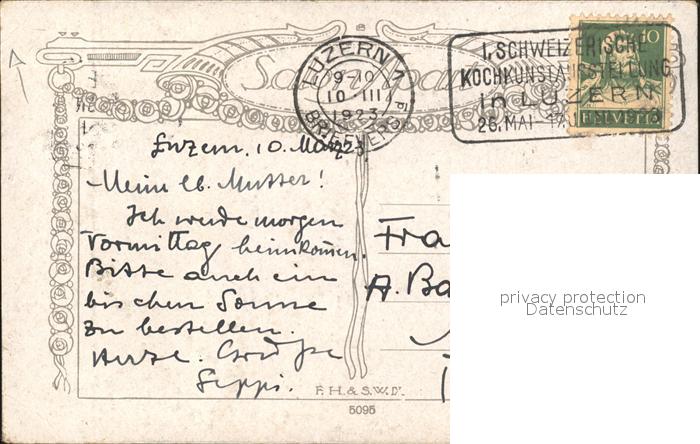 LUZERN 1
9-10
10 III
1923
BRIEFVERS.
I. SCHWEIZERISCHE
KOCHKUNSTAUSSTELLUNG
in LUZERN
26. MAI -
10
HELVETIA
Luzern, 10. März 23.
Meine lb. Mutter!
Ich werde morgen
Vormittag heimkommen.
Bitte auch ein
bischen Sonne
zu bestellen.
Herzl. Grüsse
Seppi.
Fra
A. Ba
F. H. & S. W. D'.
5095
privacy protection
Datenschutz